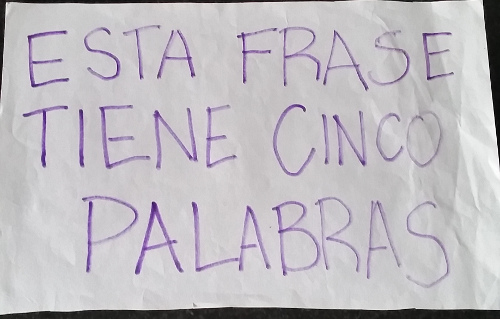 ESTA FRASE
TIENE CINCO
PALABRAS